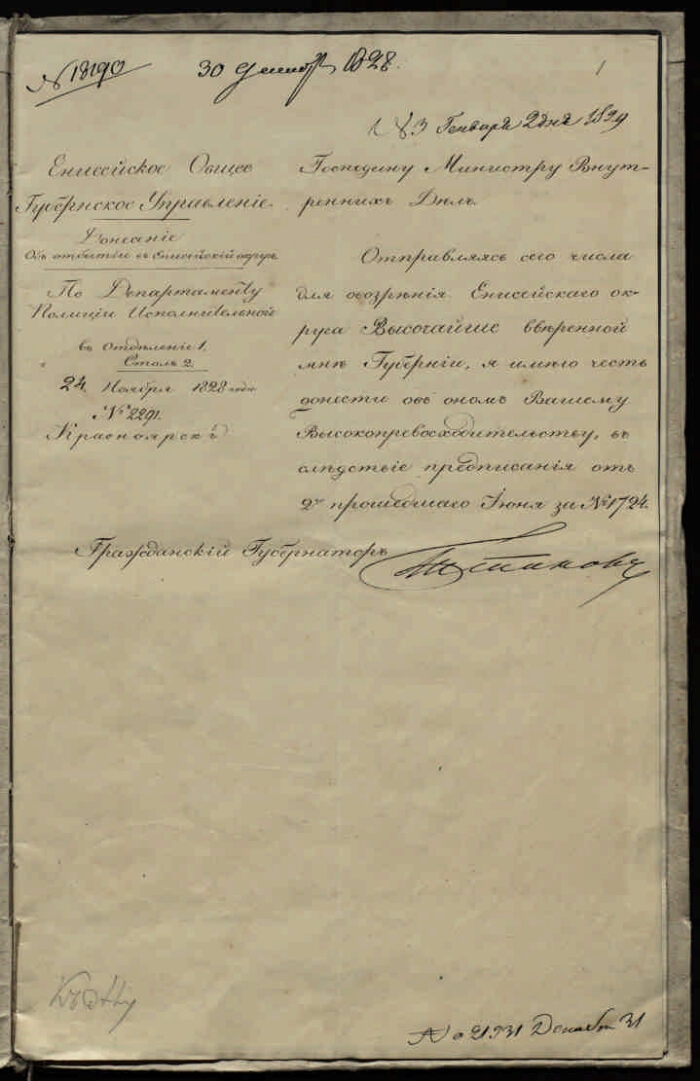 № 18190
30 декабр 1828.
1
183 Генваря 2 дня 1829
Енисейское Общее
Губернское Управленіе.
Донесеніе
Объ отбытіи въ Енисейскій округъ
По Департаменту
Полиціи Исполнительной
въ отдѣленіе 1.
Столъ 2.
24 Ноября 1828 года
№ 2291.
Красноярскъ
Господину Министру Внут-
реннихъ Дѣлъ.
Отправляясь сего числа
для обозрѣнія Енисейскаго ок-
руга Высочайше ввѣренной
мнѣ Губерніи, я имѣю честь
донести объ ономъ Вашему
Высокопревосходительству, въ
слѣдствіе предписанія отъ
2го прошедшаго Іюня за № 1724.
Гражданскій Губернаторъ
№ 21931 Декабр 31